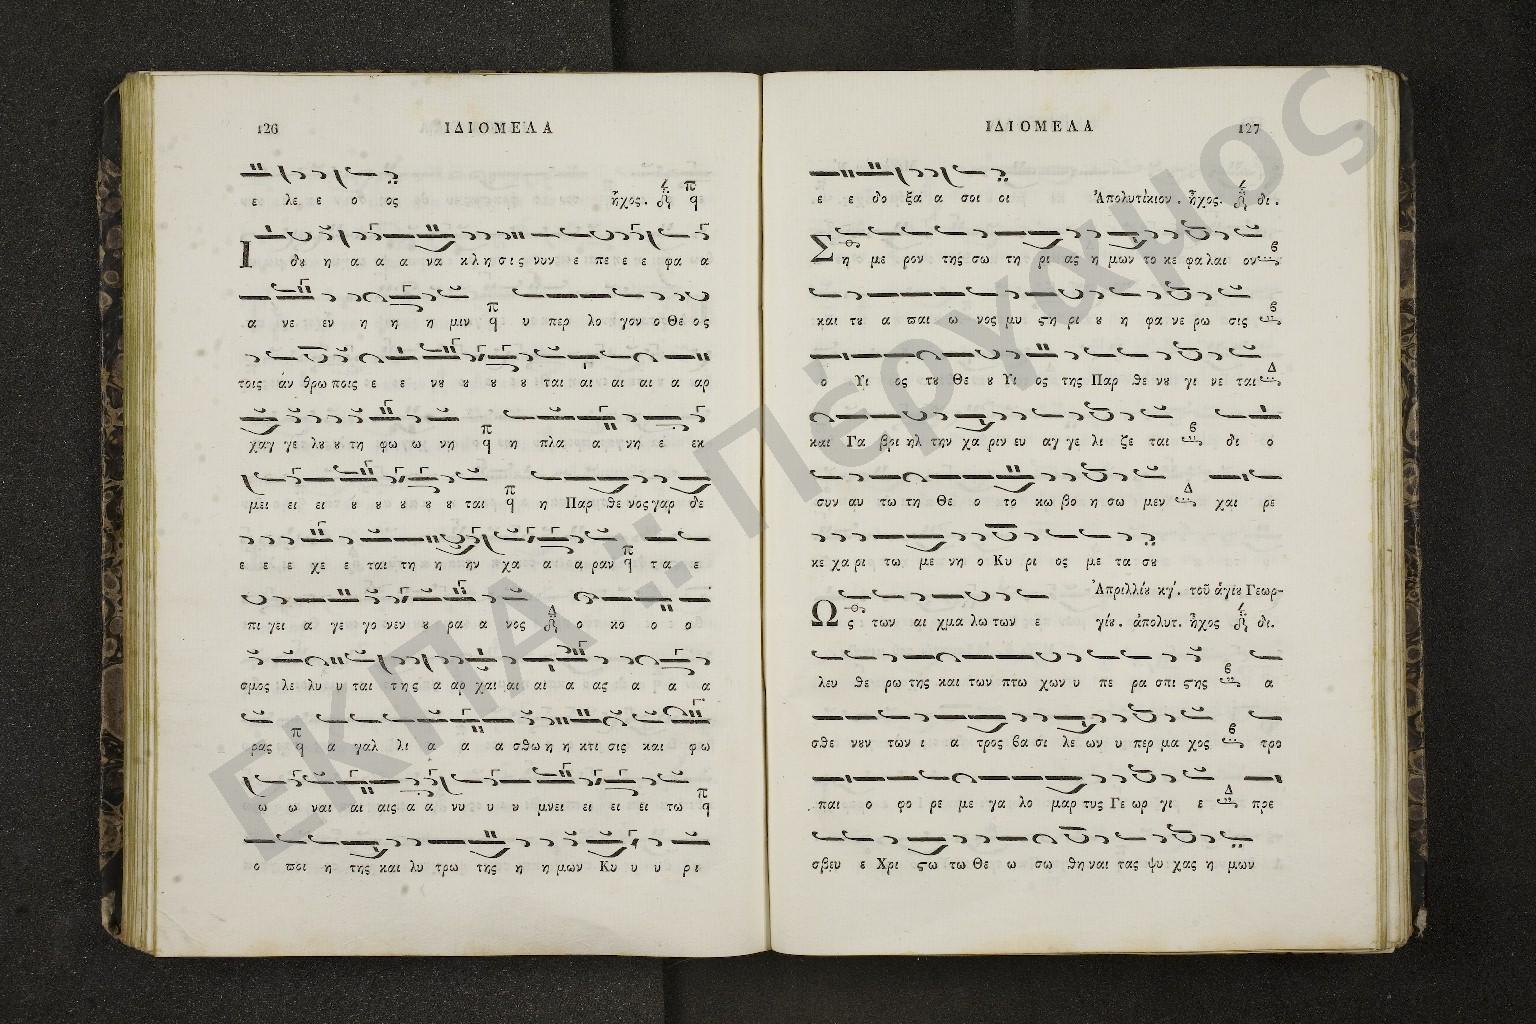 126 ΙΔΙΟΜΕΛΑ
ε λε ε ο ος ἦχος. π q
Ι δȣ η α α α να κλησις νυν ε πε ε ε φα α
α νε εν η η η μιν π q υ περ λο γον ο Θε ος
τοις ἀν θρω ποις ε ε νȣ ȣ ȣ ȣ ȣ ται αι αι αι α αρ
χαγ γε λȣ ȣ τη φω ω νη π q η πλα α νη ε εκ
μει ει ει ȣ ȣ ȣ ȣ ȣ ται π q η Παρ θε νος γαρ δε
ε ε ε χε ε ται τη η ην χα α α ραν π q τα ε
πι γει α γε γο νεν ȣ ρα α νος Δ ο κο ο ο
σμος λε λυ υ ται της α αρ χαι αι αι α ας α α α
ρας π q α γαλ λι α α α σθω η η κτι σις και φω
ω ω ναι αι αις α α νυ υ υ μνει ει ει ει τω π q
ο ποι η της και λυ τρω της η η μων Κυ υ υ ρι
ΙΔΙΟΜΕΛΑ 127
ε ε δο ξα α σοι οι Ἀπολυτίκιον. ἦχος. δι.
Ση με ρον της σω τη ρι ας η μων το κε φα λαι ον β
και τȣ α παι ω νος μυ ϛη ρι ȣ η φα νε ρω σις β
ο Υι ος τȣ Θε ȣ Υι ος της Παρ θε νȣ γι νε ται Δ
και Γα βρι ηλ την χα ριν ευ αγ γε λι ζε ται β δι ο
συν αυ τω τη Θε ο το κω βο η σω μεν Δ χαι ρε
κε χα ρι τω με νη ο Κυ ρι ος με τα σȣ
Ἀπριλλίȣ κγ΄. τοῦ ἁγίȣ Γεωρ-
Ως των αι χμα λω των ε γίȣ. ἀπολυτ. ἦχος δι.
λευ θε ρω της και των πτω χων υ πε ρα σπι ϛης β α
σθε νȣν των ι α τρος βα σι λε ων υ περ μα χος β τρο
παι ο φο ρε με γα λο μαρ τυς Γε ωρ γι ε Δ πρε
σβευ ε Χρι ϛω τω Θε ω σω θη ναι τας ψυ χας η μων
ΕΚΠΑ :: Πέργαμος